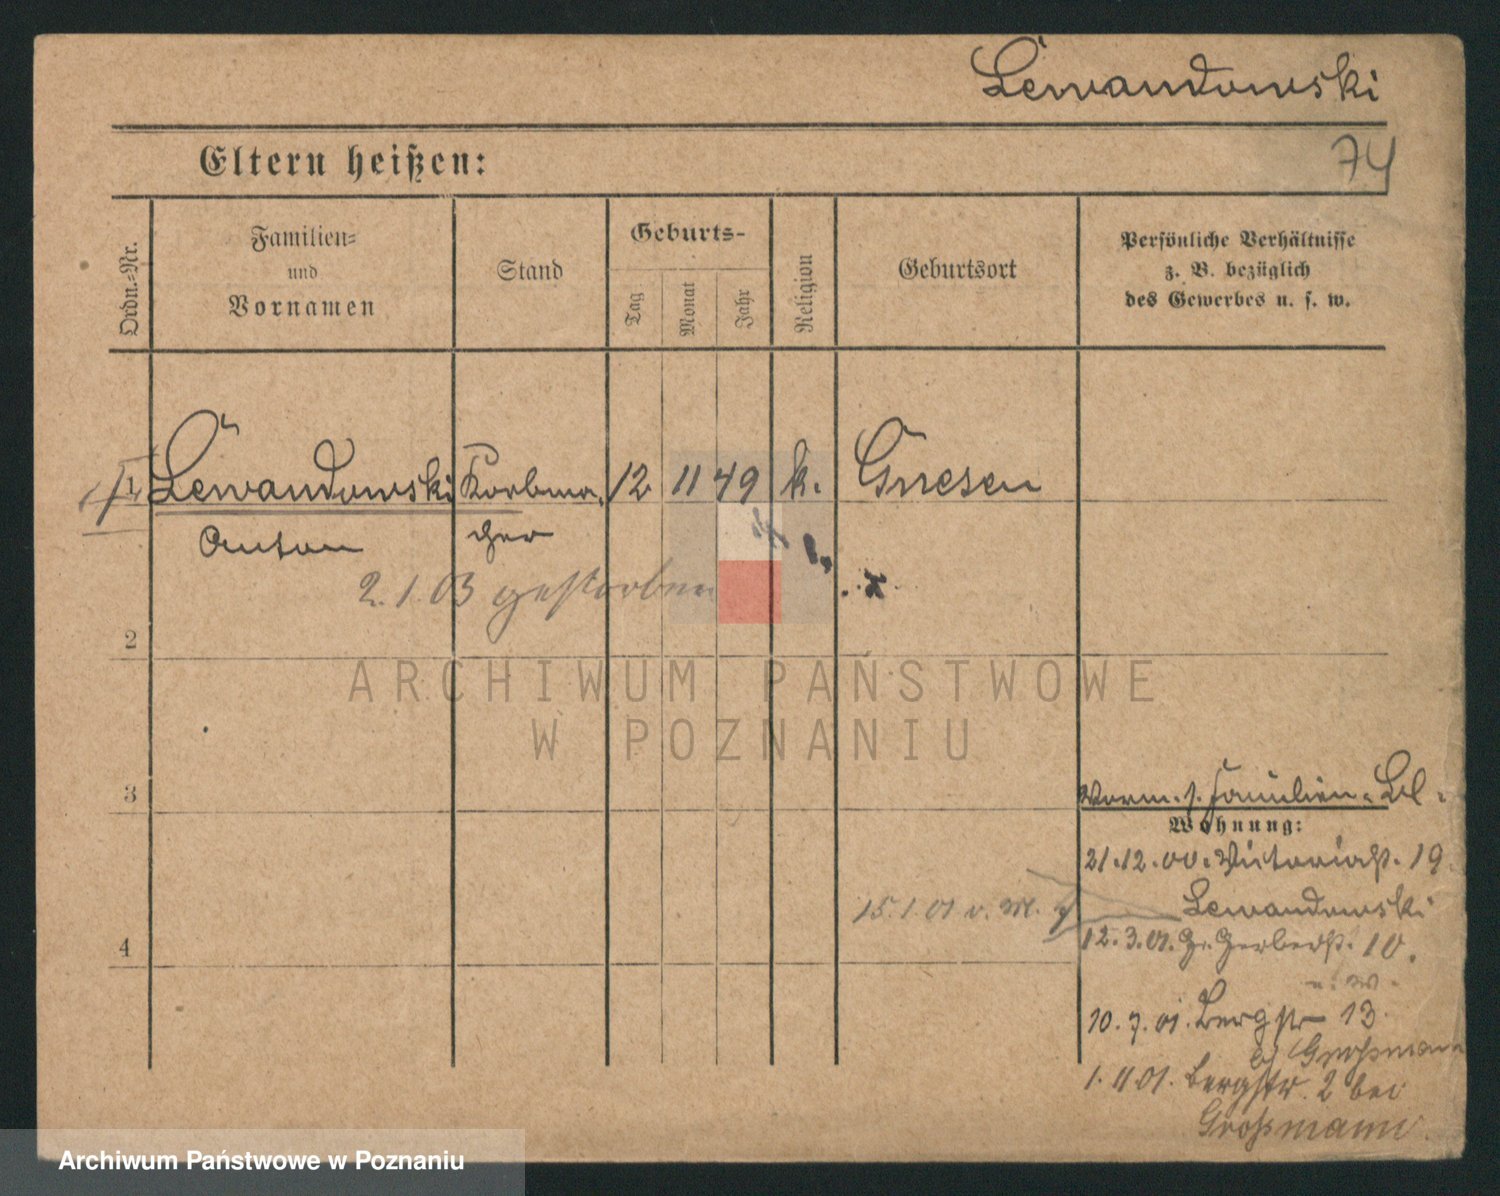 Lewandowski
Eltern heißen:
74
Ordn.-Nr.
Familien-
und
Vornamen
Stand
Geburts-
Tag
Monat
Jahr
Religion
Geburtsort
Persönliche Verhältnisse
z. B. bezüglich
des Gewerbes u. s. w.
1 Lewandowski Korbma- 12 11 49 k. Gnesen
Anton cher
2.1.03 gestorben
2
ARCHIWUM PAŃSTWOWE
W POZNANIU
3
Vorm. s. Familien-Bl.
Wohnung:
21.12.00. Victoriast. 19
Lewandowski
15.1.01 v. M.
12.3.01. Gr. Gerberst. 10.
4
u. W.
10.7.01. Bergstr 13.
b/ Großmann
1.11.01. Bergstr. 2 bei
Großmann.
Archiwum Państwowe w Poznaniu